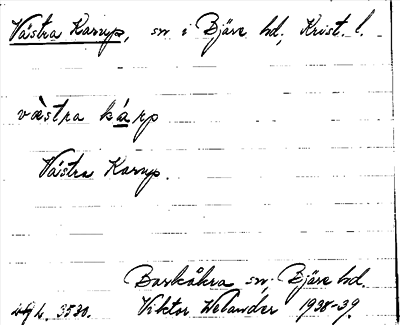 Västra Karup, sn i Bjäre hd, Krist. l.
västra kárp
Västra Karup.
Barkåkra sn, Bjäre hd.
Viktor Welander 1938-39.
3530.